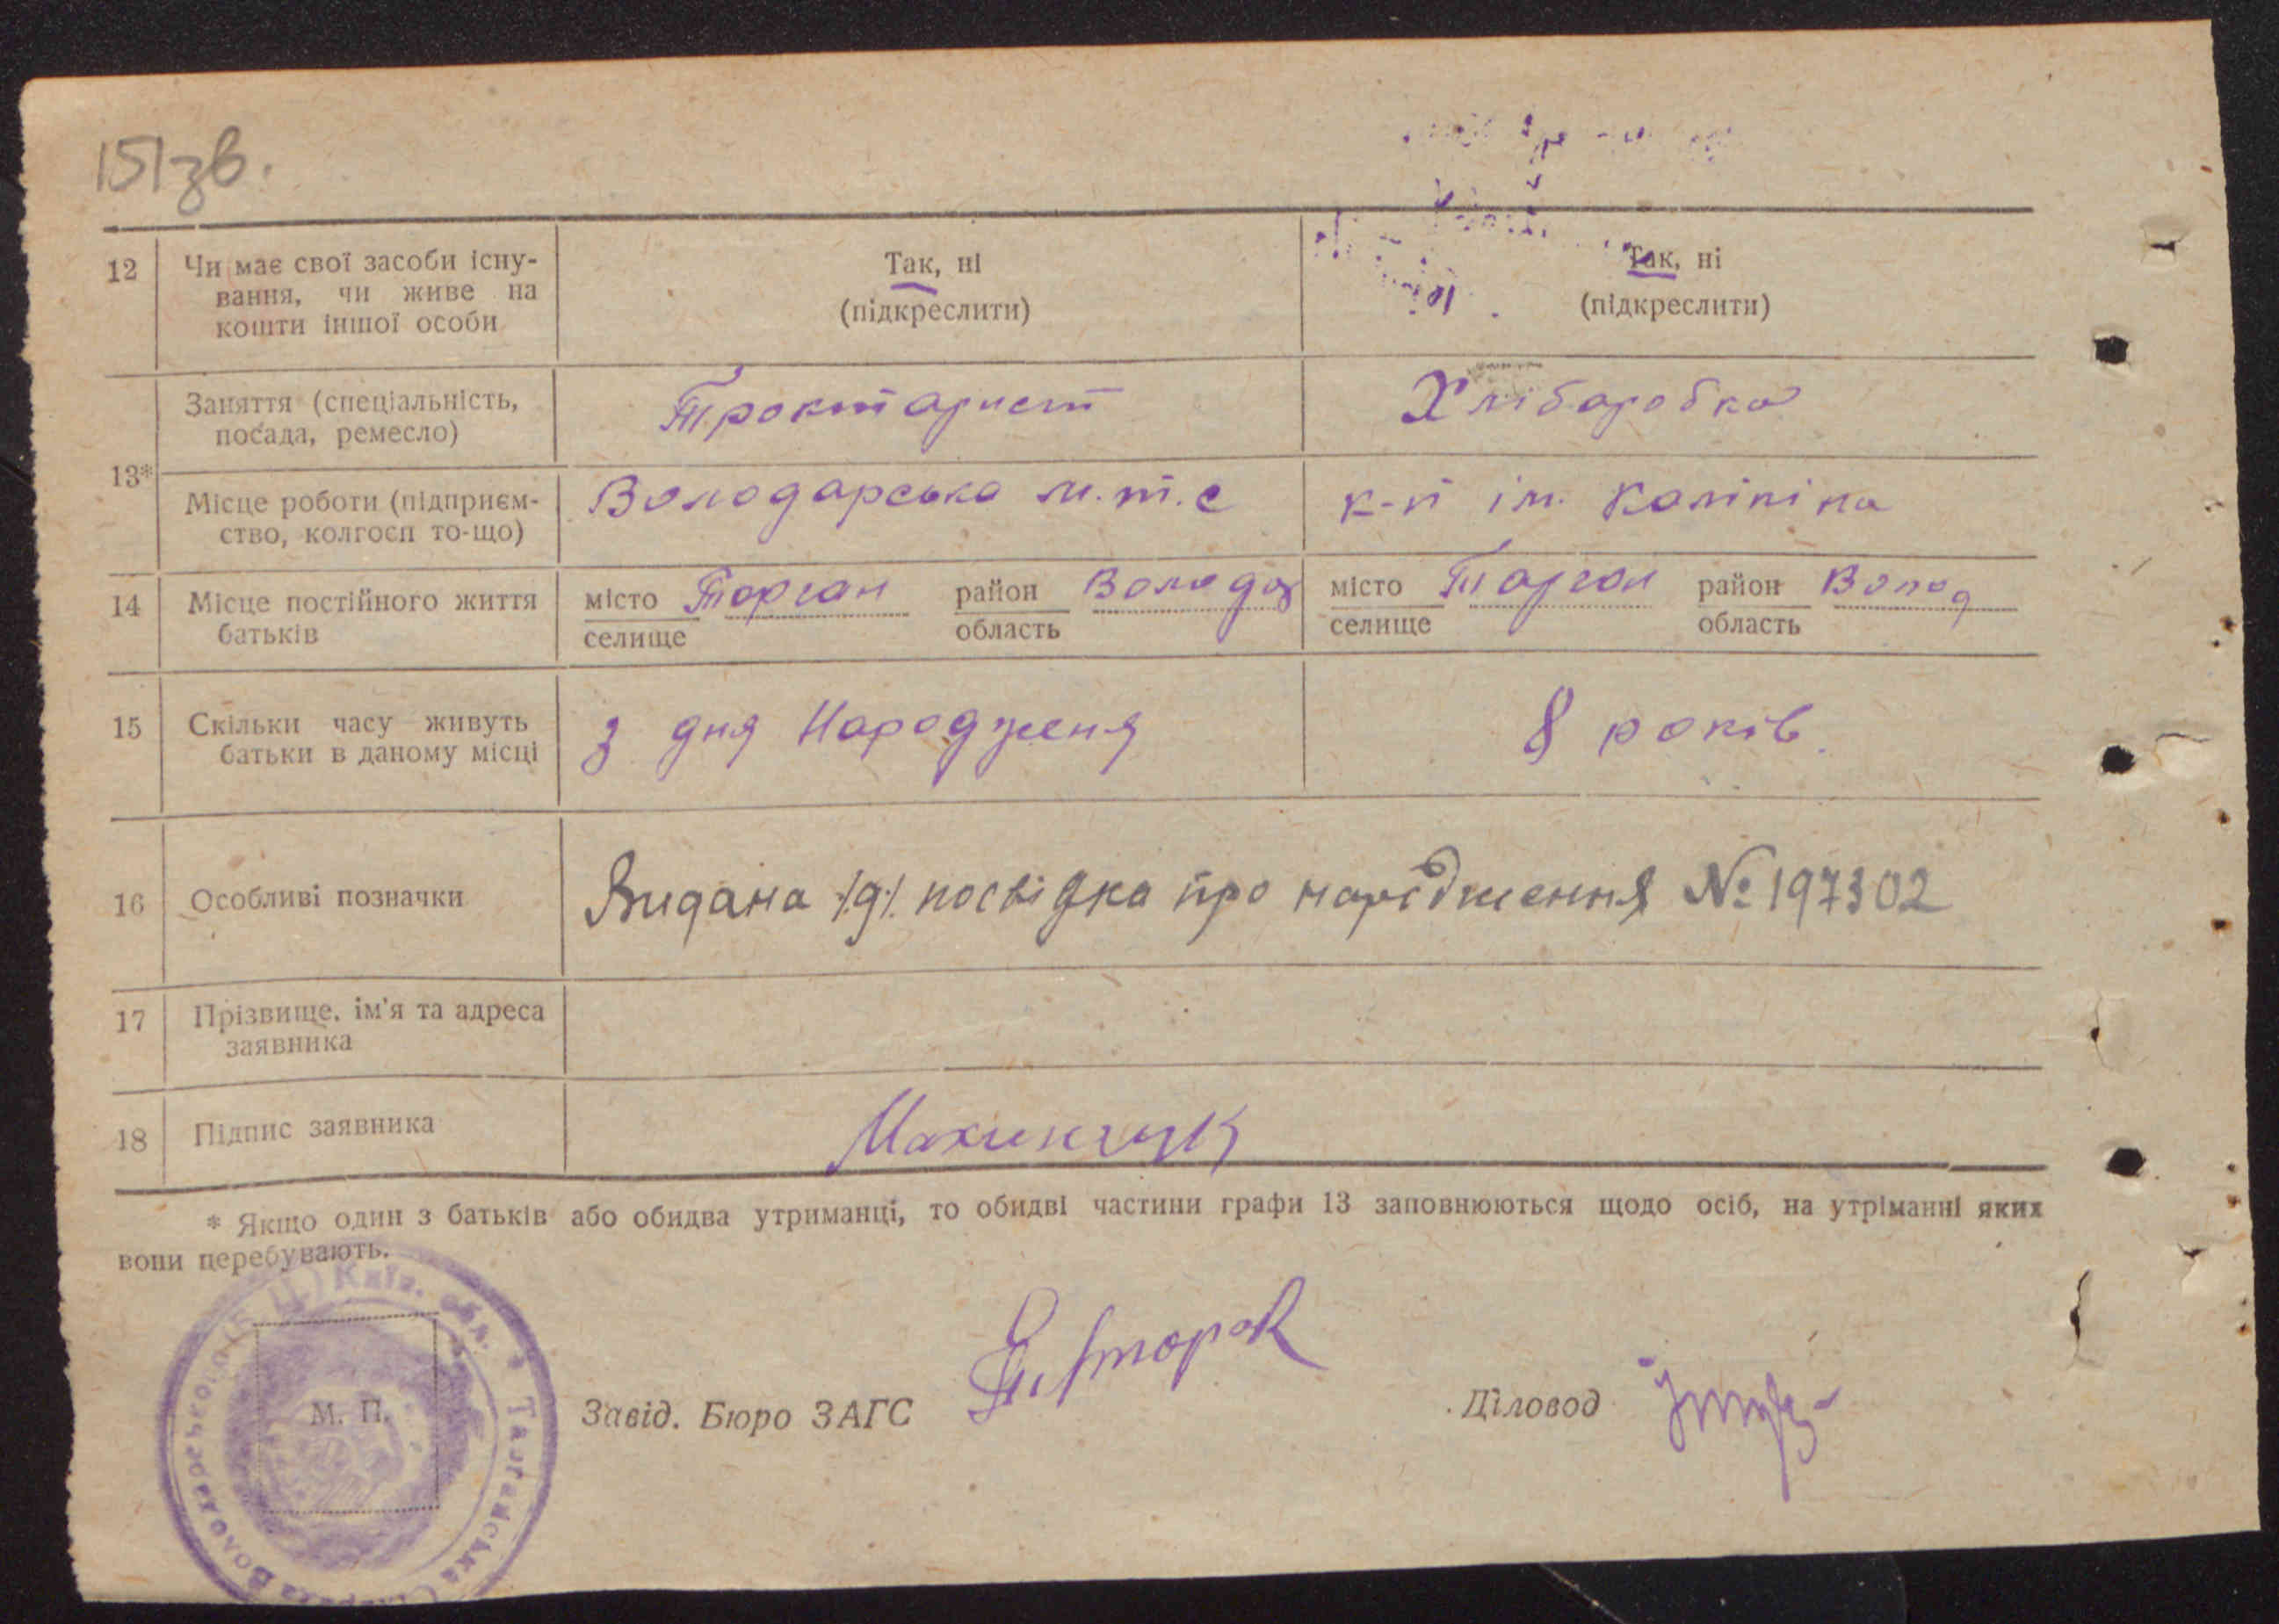 151зв.
12 Чи має свої засоби існу-
вання, чи живе на
кошти іншої особи
Так, ні
(підкреслити)
Так, ні
(підкреслити)
13*
Заняття (спеціальність,
посада, ремесло)
Трактарист
Хліборобка
Місце роботи (підприєм-
ство, колгосп то-що)
Володарська м.т.с
к-п ім. Калініна
14 Місце постійного життя
батьків
місто Торган район Володар
селище область
місто Тарган район Волод
селище область
15 Скільки часу живуть
батьки в даному місці
з дня Народженя
8 років.
16 Особливі позначки
Видана посвідка про народження № 197302
17 Прізвище, ім'я та адреса
заявника
18 Підпис заявника
* Якщо один з батьків або обидва утриманці, то обидві частини графи 13 заповнюються щодо осіб, на утріманні яких
вони перебувають.
М. П.
Завід. Бюро ЗАГС
Діловод
Київ. обл. * Тарганська Сільрада Володарського